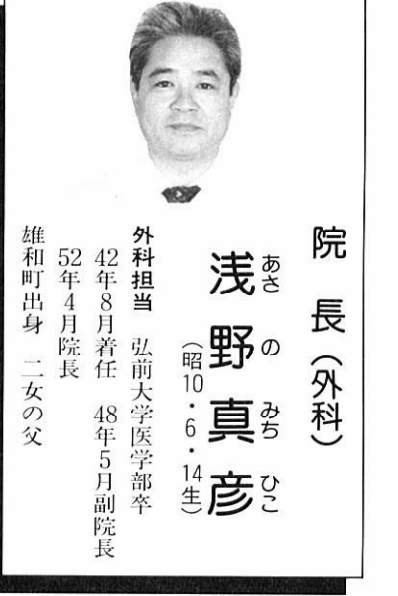 院長（外科）
あさ の みち ひこ
浅野真彦
（昭10・6・14生）
外科担当　弘前大学医学部卒
42年8月着任　48年5月副院長
52年4月院長
雄和町出身　二女の父